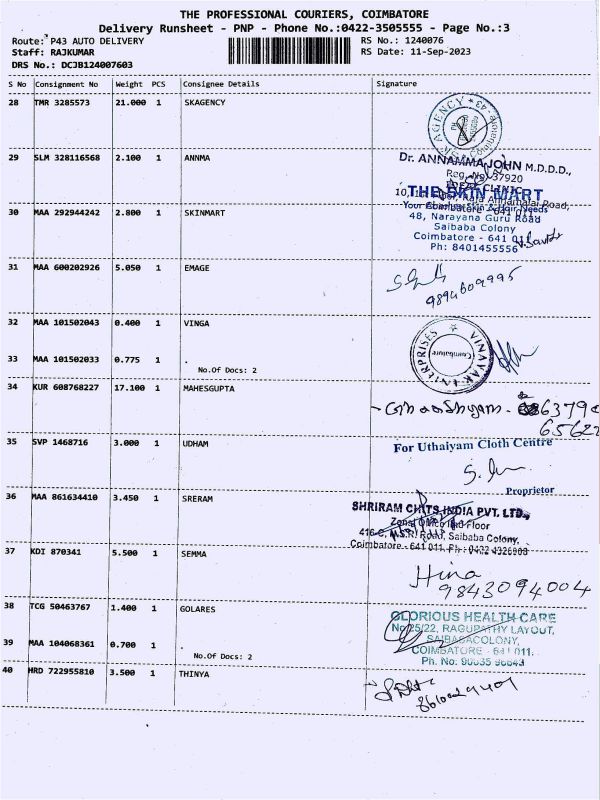 THE PROFESSIONAL COURIERS, COIMBATORE
Delivery Runsheet - PNP - Phone No.:0422-3505555 - Page No.:3
Route: P43 AUTO DELIVERY
RS No.: 1240076
Staff: RAJKUMAR
RS Date: 11-Sep-2023
DRS No.: DCJB124007603
S No Consignment No Weight PCS Consignee Details Signature
28 TMR 3285573 21.000 1 SKAGENCY
SK AGENCY
29 SLM 328116568 2.100 1 ANNMA
Dr. ANNAMMA JOHN M.D.D.D.,
Reg. No. 37920
THE SKIN MART
Your Skin & Hair Needs
48, Narayana Guru Road
Saibaba Colony
Coimbatore - 641 011
Ph: 8401455556
30 MAA 292944242 2.800 1 SKINMART
31 MAA 600202926 5.050 1 EMAGE
9894609995
32 MAA 101502043 0.400 1 VINGA
VINAYAK ENTERPRISES
Coimbatore
33 MAA 101502033 0.775 1
No.Of Docs: 2
34 KUR 608768227 17.100 1 MAHESGUPTA
35 SVP 1468716 3.000 1 UDHAM
For Uthaiyam Cloth Centre
Proprietor
36 MAA 861634410 3.450 1 SRERAM
SHRIRAM CHITS INDIA PVT. LTD.,
Zonal Office IInd Floor
416-C, N.S.R. Road, Saibaba Colony,
Coimbatore - 641 011. Ph: 0422 4326903
37 KDI 870341 5.500 1 SEMMA
Hina
9843094004
38 TCG 50463767 1.400 1 GOLARES
GLORIOUS HEALTH CARE
No.25/22, RAGUPATHY LAYOUT,
SAIBABACOLONY,
COIMBATORE - 641 011.
Ph. No: 90035 96643
39 MAA 104068361 0.700 1
No.Of Docs: 2
40 HRD 722955810 3.500 1 THINYA